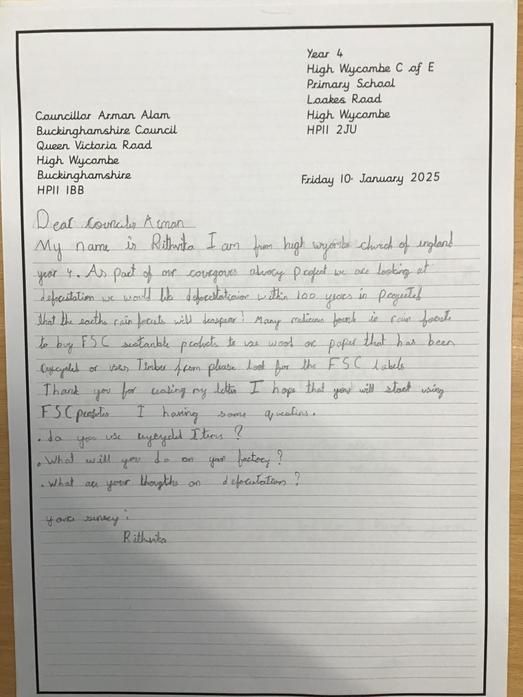 Year 4
High Wycombe C of E
Primary School
Loakes Road
High Wycombe
HP11 2JU
Councillor Arman Alam
Buckinghamshire Council
Queen Victoria Road
High Wycombe
Buckinghamshire
HP11 1BB
Friday 10 January 2025
Dear Arman
My name is Rithvika I am from high church of england
year 4. As part of our project we are looking at
we would like within 100 years in
that the earths rain will Many found in rain
to buy FSC products to use wood or paper that has been
or uses Timber from please look for the FSC labels
Thank you for my letter I hope that you will start using
FSC I having some
. do you use ?
. What will you do on your factory ?
. What are your thoughts on ?
Rithvika